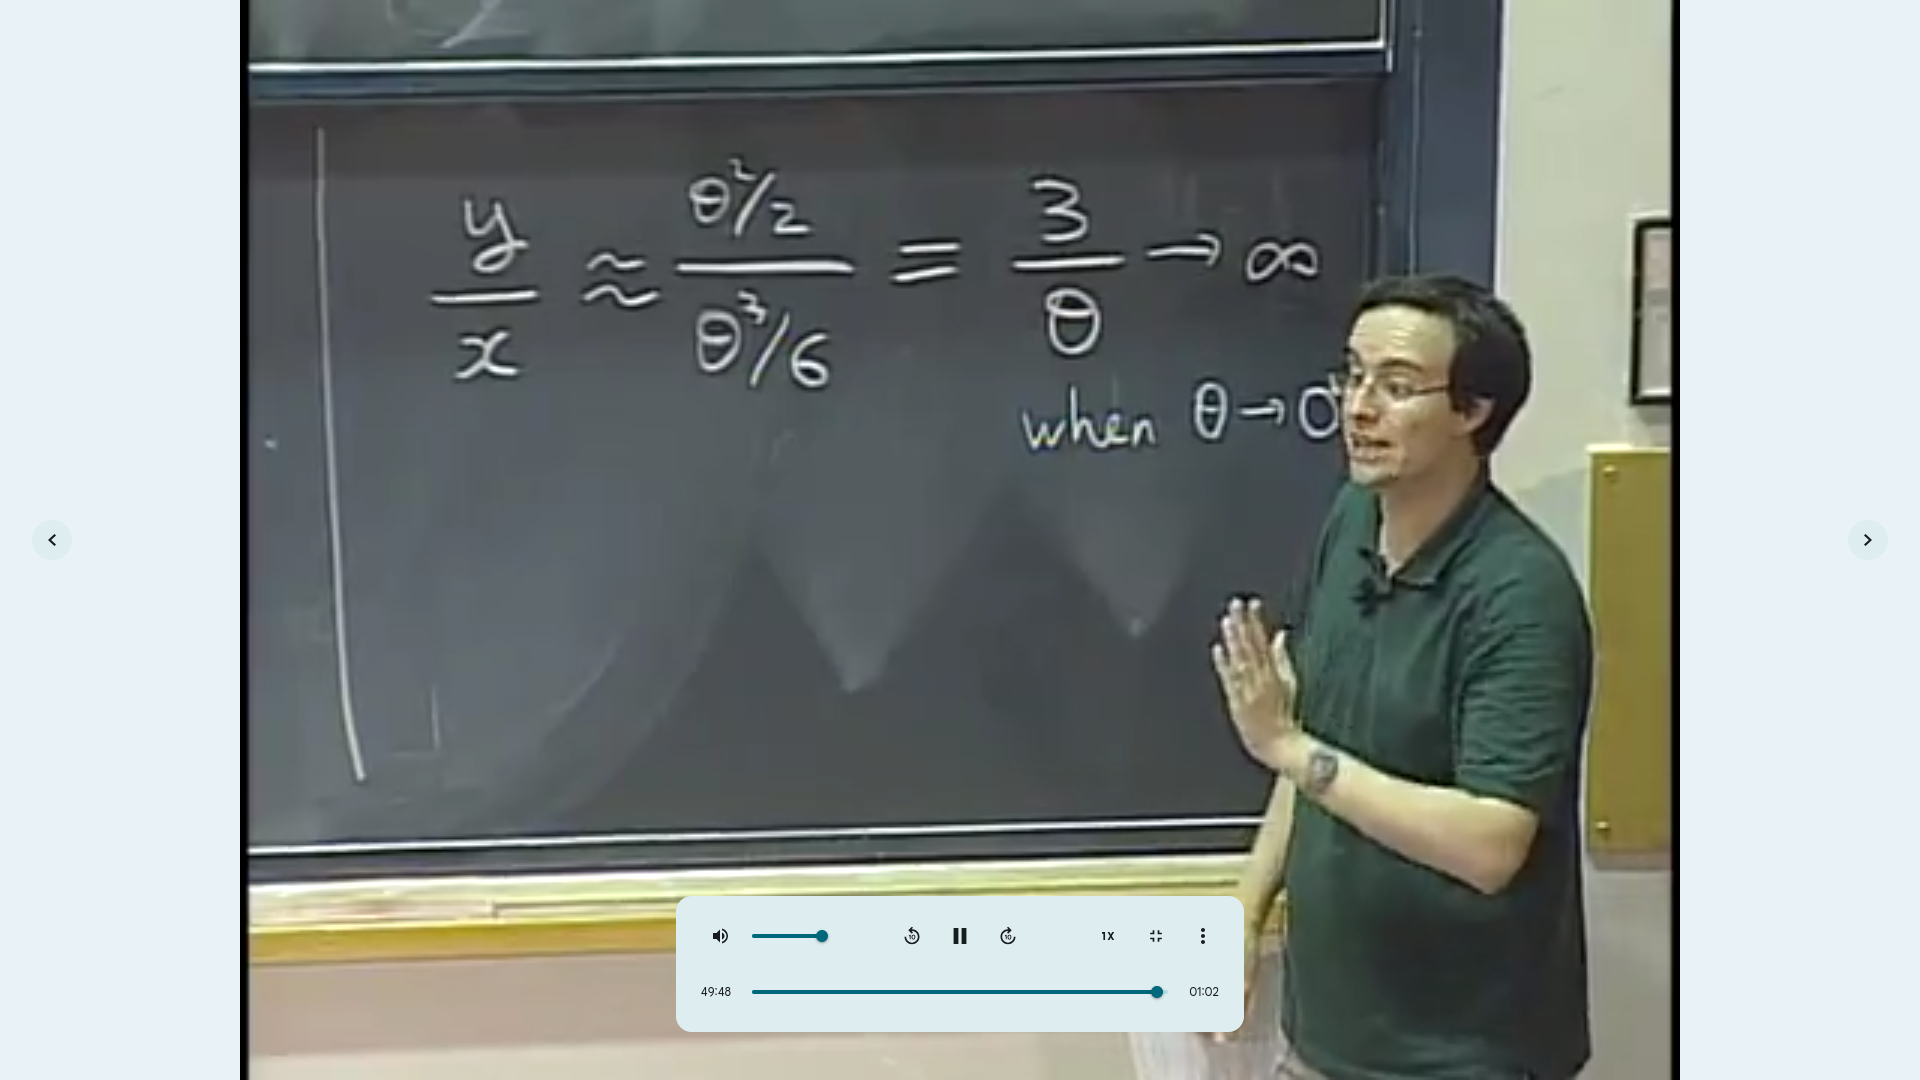 y/x ≈ (θ²/2)/(θ³/6) = 3/θ → ∞
when θ → 0⁺
10
10
1X
49:48
01:02